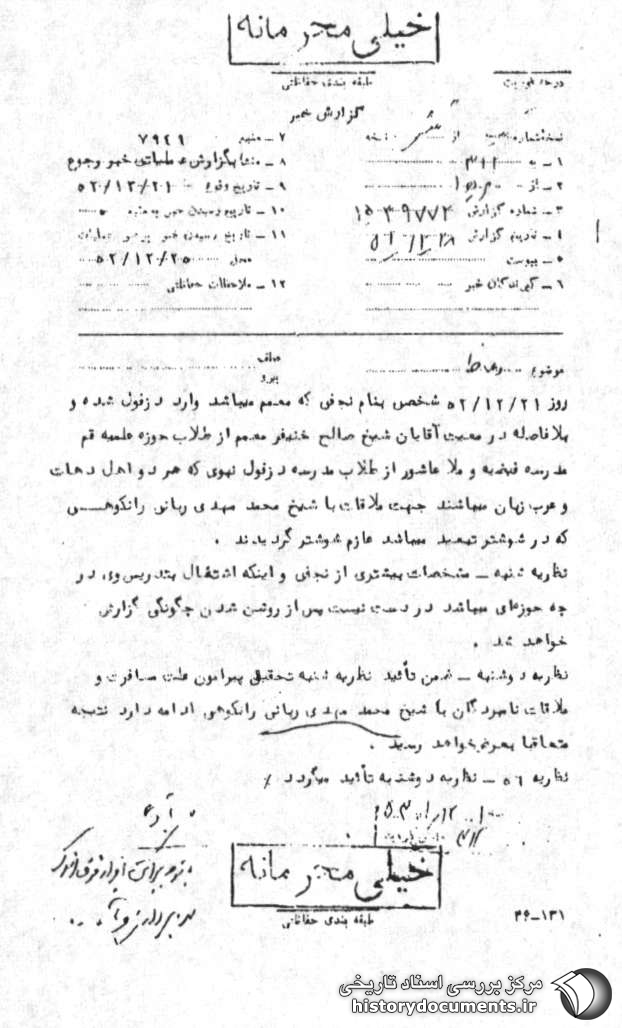 خیلی محرمانه
طبقه بندی حفاظتی
درجه فوریت
گزارش خبر
نسخه شماره از نسخه
۱ ـ به ۳۱۲
۲ ـ از
۳ ـ شماره گزارش
۴ ـ تاریخ گزارش
۵ ـ پیوست
۶ ـ گیرندگان خبر
۷ ـ منبع ۷۹۲۱
۸ ـ منشاء گزارش عملیاتی خبر رجوع
۹ ـ تاریخ وقوع ۵۲/۱۲/۲۱
۱۰ ـ تاریخ رسیدن خبر به منبع
۱۱ ـ تاریخ رسیدن خبر به رهبر عملیات
محل ۵۲/۱۲/۲۵
۱۲ ـ ملاحظات حفاظتی
موضوع وعاظ
عطف
پیرو
روز ۵۲/۱۲/۲۱ شخصی بنام نجفی که معمم میباشد وارد دزفول شده و
بلافاصله در معیت آقایان شیخ صالح خنیفر معمم از طلاب حوزه علمیه قم
مدرسه فیضیه و ملا عاشور از طلاب مدرسه دزفول نبوی که هر دو اهل دهات
و عرب زبان میباشند جهت ملاقات با شیخ محمد مهدی ربانی رانکوهــی
که در شوشتر تبعید میباشد عازم شوشتر گردیدند .
نظریه شنبه ـ مشخصات بیشتری از نجفی و اینکه اشتغال بتدریس وی در
چه حوزهای میباشد در دست نیست پس از روشن شدن چگونگی گزارش
خواهد شد .
نظریه دوشنبه ـ ضمن تأئید نظریه شنبه تحقیق پیرامون علت مسافرت و
ملاقات نامبردگان با شیخ محمد مهدی ربانی رانکوهی ادامه دارد نتیجه
متعاقبا بعرض خواهد رسید .
نظریه ۵۶ ـ نظریه دوشنبه تأئید میگردد
خیلی محرمانه
طبقه بندی حفاظتی
۳۶-۱۳۱
مرکز بررسی اسناد تاریخی
historydocuments.ir